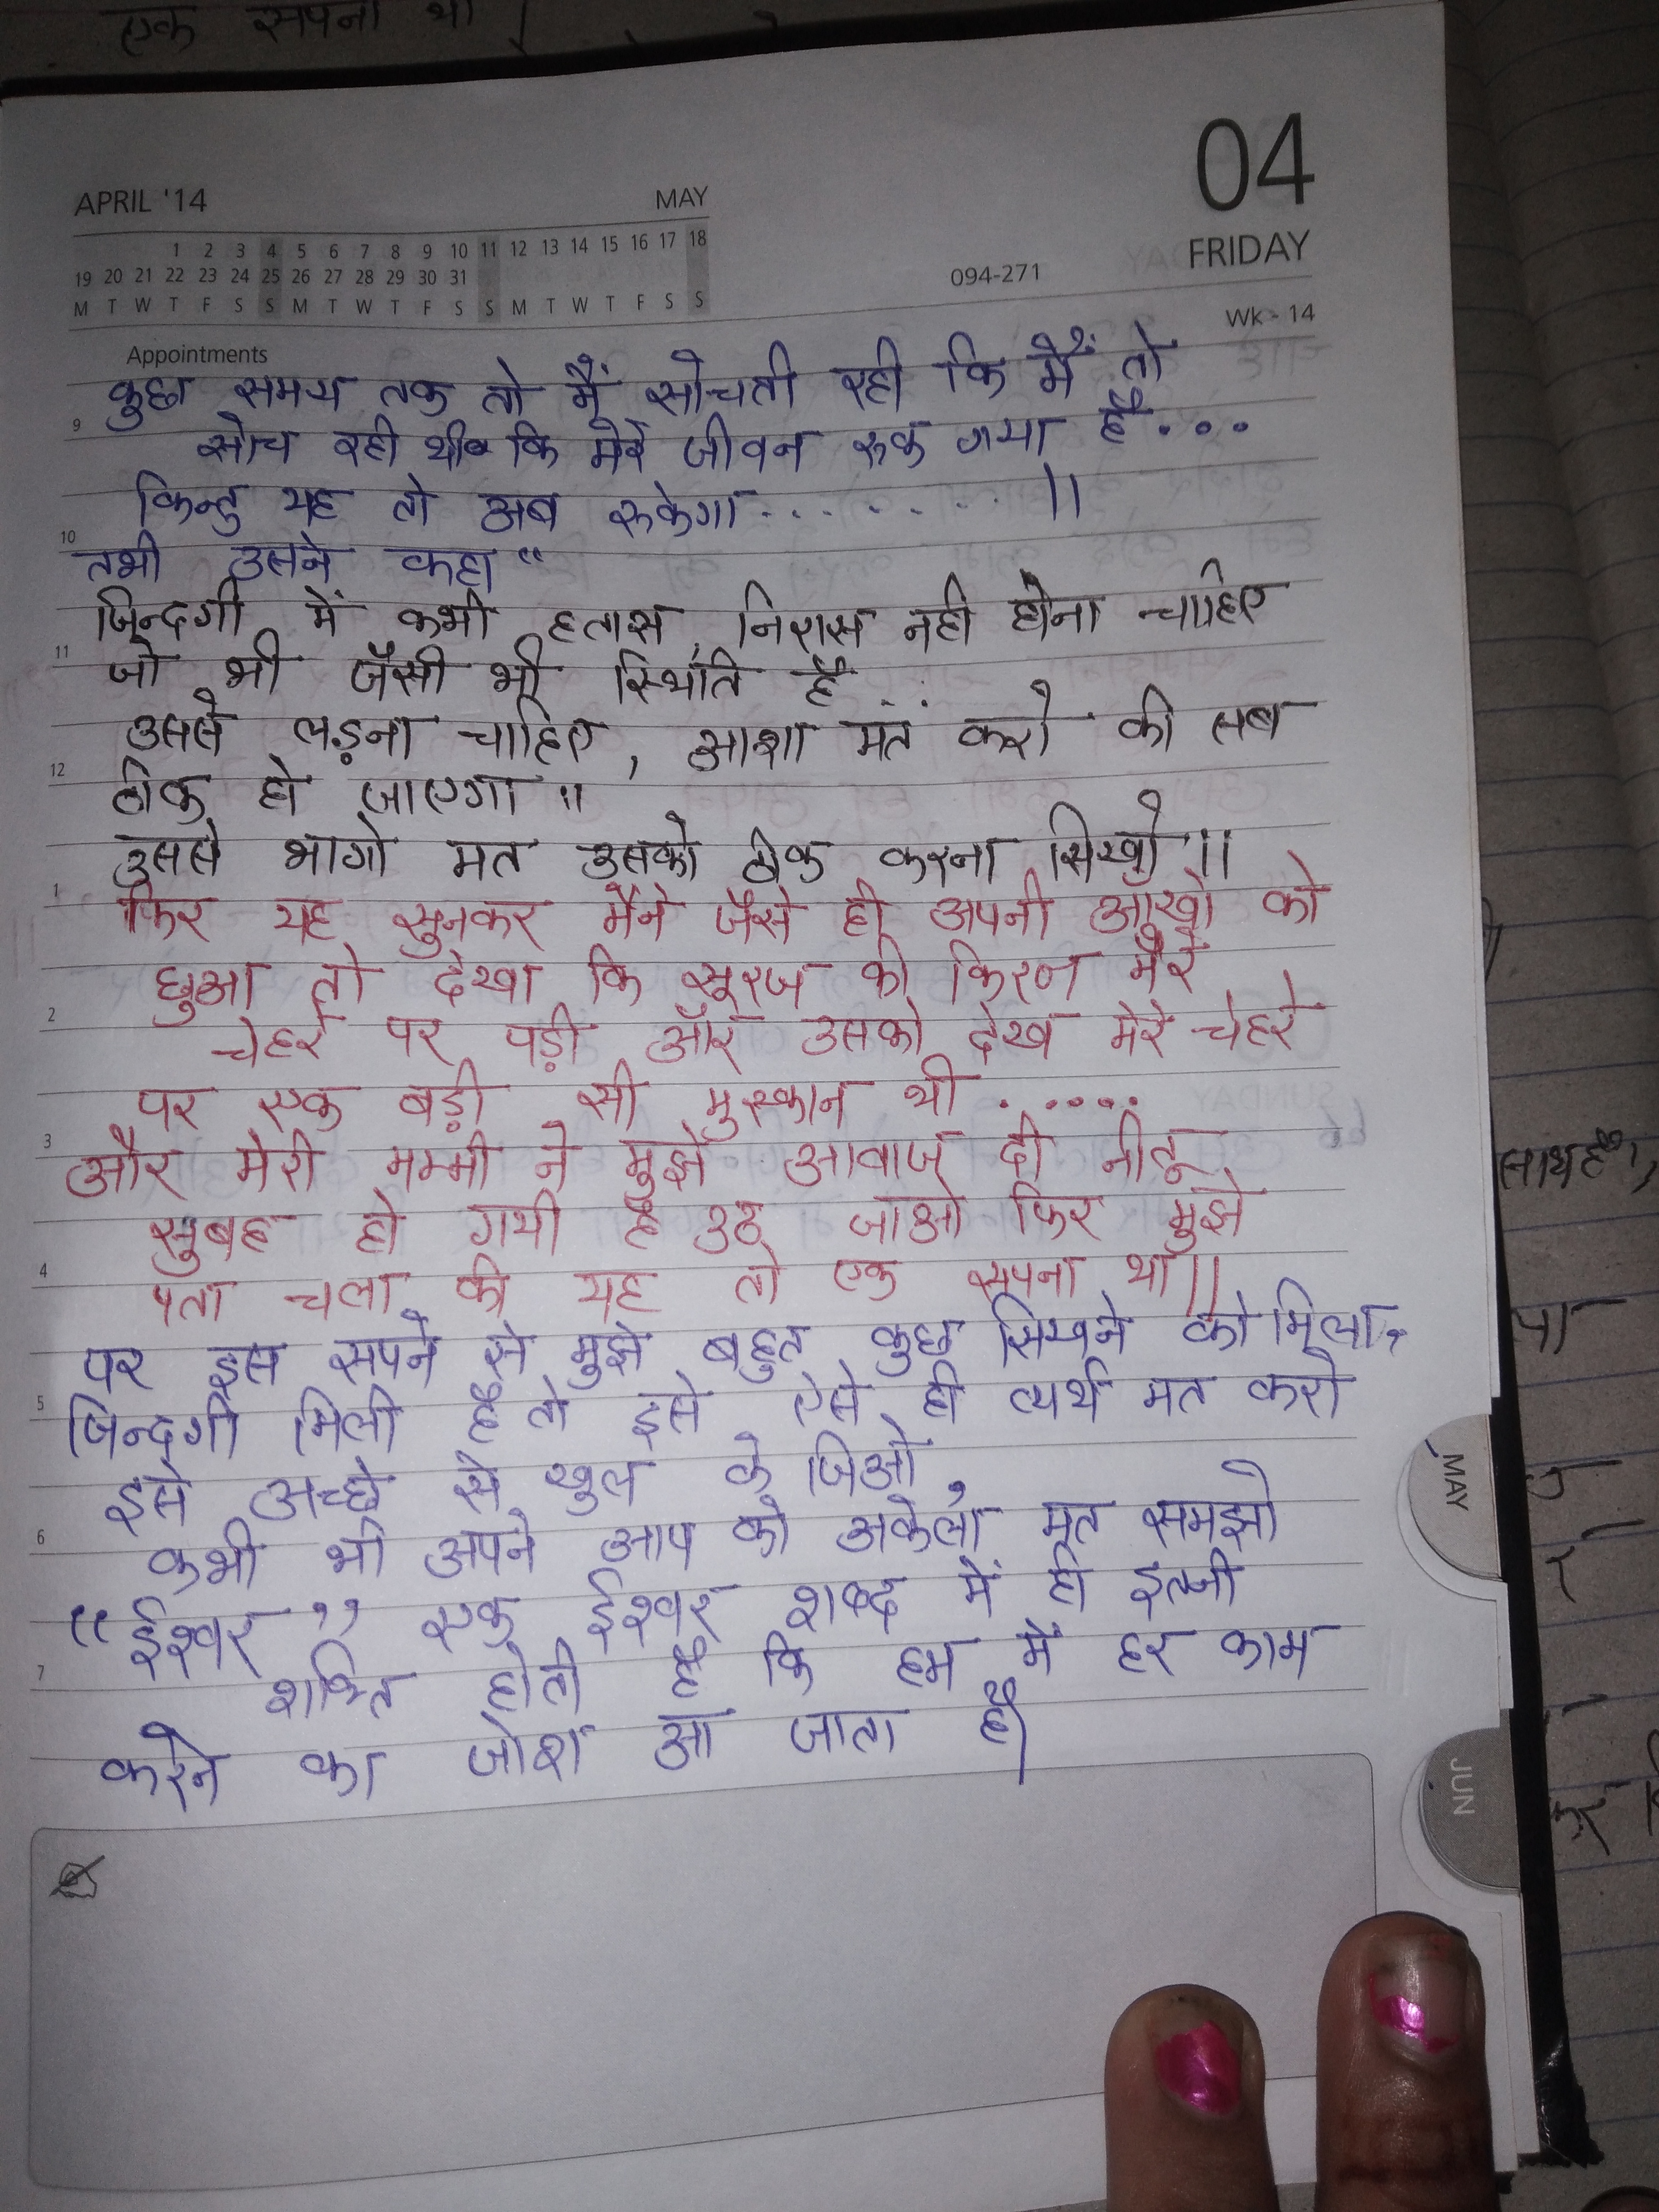 एक सपना था।
04
APRIL '14 MAY
FRIDAY
1 2 3 4 5 6 7 8 9 10 11 12 13 14 15 16 17 18
19 20 21 22 23 24 25 26 27 28 29 30 31
M T W T F S S M T W T F S S M T W T F S S
094-271
Wk - 14
Appointments
कुछ समय तक तो मैं सोचती रही कि मैं तो
9 सोच रही थी कि मेरे जीवन रुक गया है...
किन्तु यह तो अब रुकेगा......... ॥
10
तभी उसने कहा "
जिन्दगी में कभी हतास, निरास नही होना चाहिए
11 जो भी जैसी भी स्थिति है...
उससे लड़ना चाहिए, आशा मत करो की सब
12 ठीक हो जाएगा॥
उससे भागो मत उसको ठीक करना सिखो॥
1 फिर यह सुनकर मैंने जैसे ही अपनी आँखो को
छुआ तो देखा कि सूरज की किरण मेरे
2 चेहरे पर पड़ी और उसको देख मेरे चेहरे
पर एक बड़ी सी मुस्कान थी.....
3 और मेरी मम्मी ने मुझे आवाज दी नीतू
सुबह हो गयी है उठ जाओ फिर मुझे
4 पता चला की यह तो एक सपना था॥
पर इस सपने से मुझे बहुत कुछ सिखने को मिला,
5 जिन्दगी मिली है तो इसे ऐसे ही व्यर्थ मत करो
इसे अच्छे से खुल के जिओ,
6 कभी भी अपने आप को अकेला मत समझो
"ईश्वर" एक ईश्वर शब्द में ही इतनी
7 शक्ति होती है कि हम में हर काम
करने का जोश आ जाता है।
MAY
JUN
साथ है",